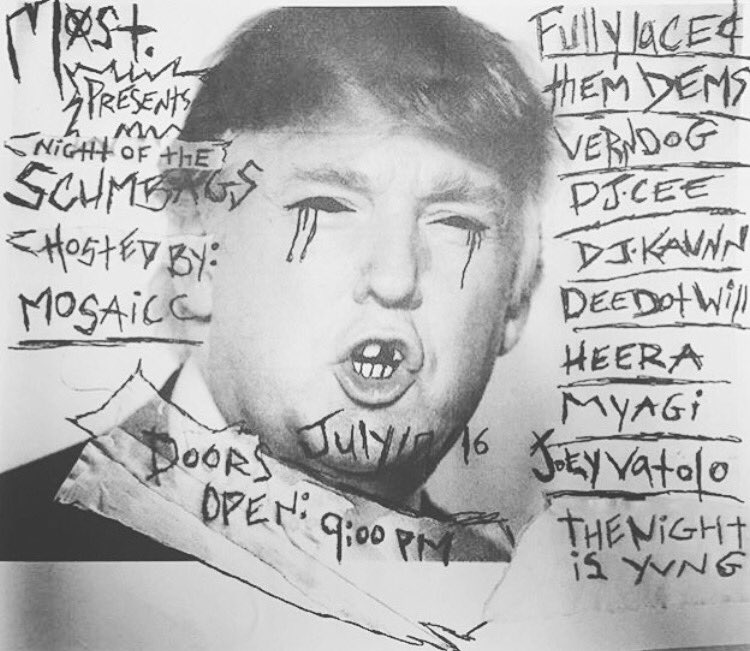 MØSt.
PRESENTS
NIGHT OF tHE
SCUMBAGS
HOStED BY:
MOSAiCC
DOORS
OPEN:
9:00 PM
July 16
Fully lACED
tHEM DEMS
VERNDOG
DJ.CEE
DJ.KAVNN
DEEDOtWill
HEERA
MYAGi
JOEY Vatolo
tHE NiGHt
iS YVNG